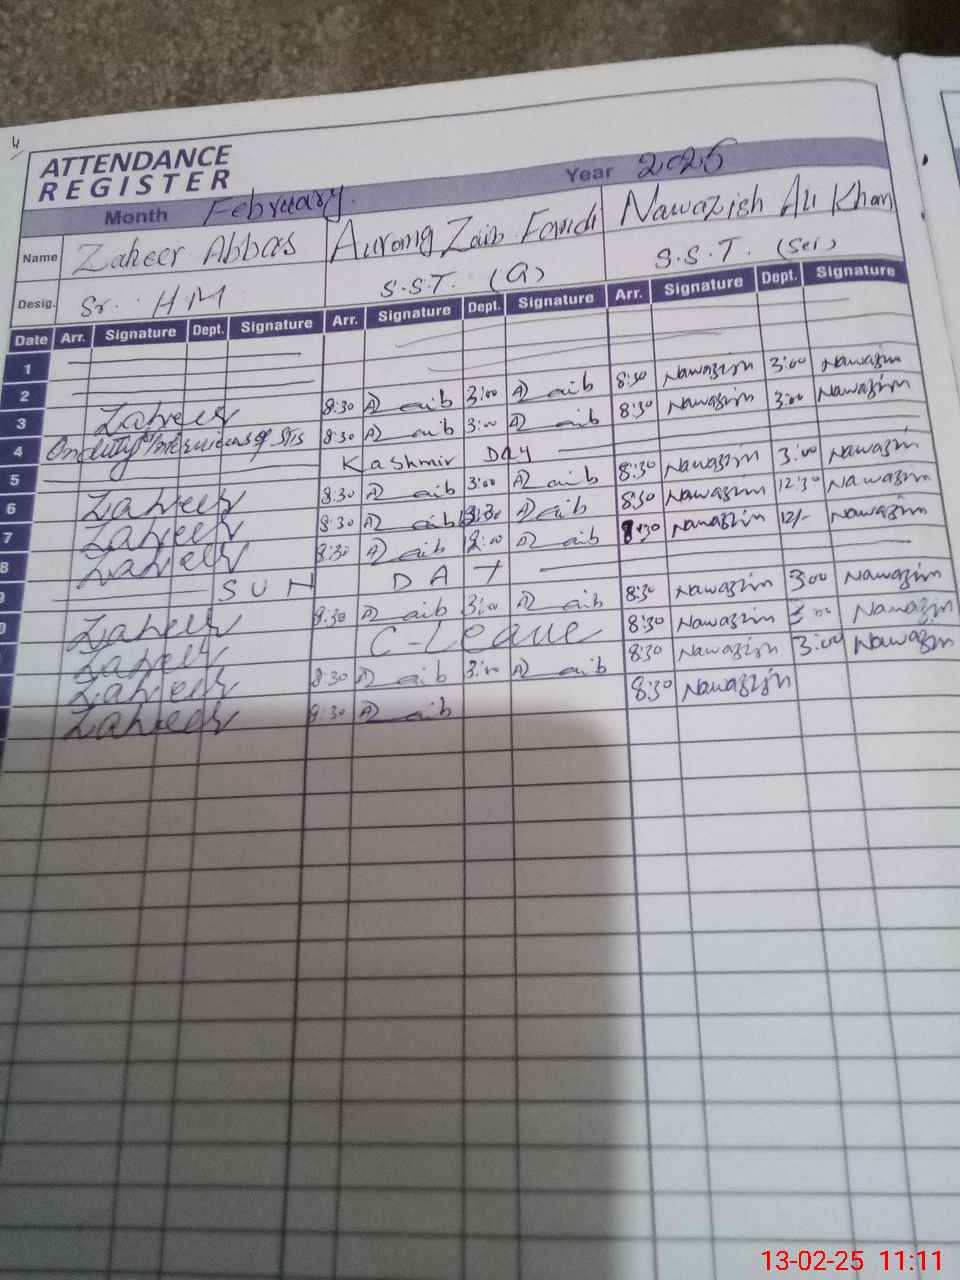 4
ATTENDANCE
REGISTER
Month February. Year 2025
Name Zaheer Abbas Aurang Zaib Faridi Nawazish Ali Khan
Desig. Sr. HM S.S.T. (G) S.S.T. (Sci)
Date Arr. Signature Dept. Signature Arr. Signature Dept. Signature Arr. Signature Dept. Signature
1
2
3 Zaheer 8:30 A aib 3:00 A aib 8:30 Nawazish 3:00 Nawazish
4 On duty Interviews of STIs 8:30 A aib 3:00 A aib 8:30 Nawazish 3:00 Nawazish
5 Kashmir Day
6 Zaheer 8:30 A aib 3:00 A aib 8:30 Nawazish 3:00 Nawazish
7 Zaheer 8:30 A aib A aib 8:30 Nawazish 12:30 Nawazish
8 Zaheer 8:30 A aib A aib 8:30 Nawazish 12/- Nawazish
9 SUN DAY
0 Zaheer 8:30 A aib 3:00 A aib 8:30 Nawazish 3:00 Nawazish
Zaheer C-Leave 8:30 Nawazish 3:00 Nawazish
Zaheer 8:30 A aib 3:00 A aib 8:30 Nawazish 3:00 Nawazish
Zaheer 8:30 A aib 8:30 Nawazish
13-02-25 11:11